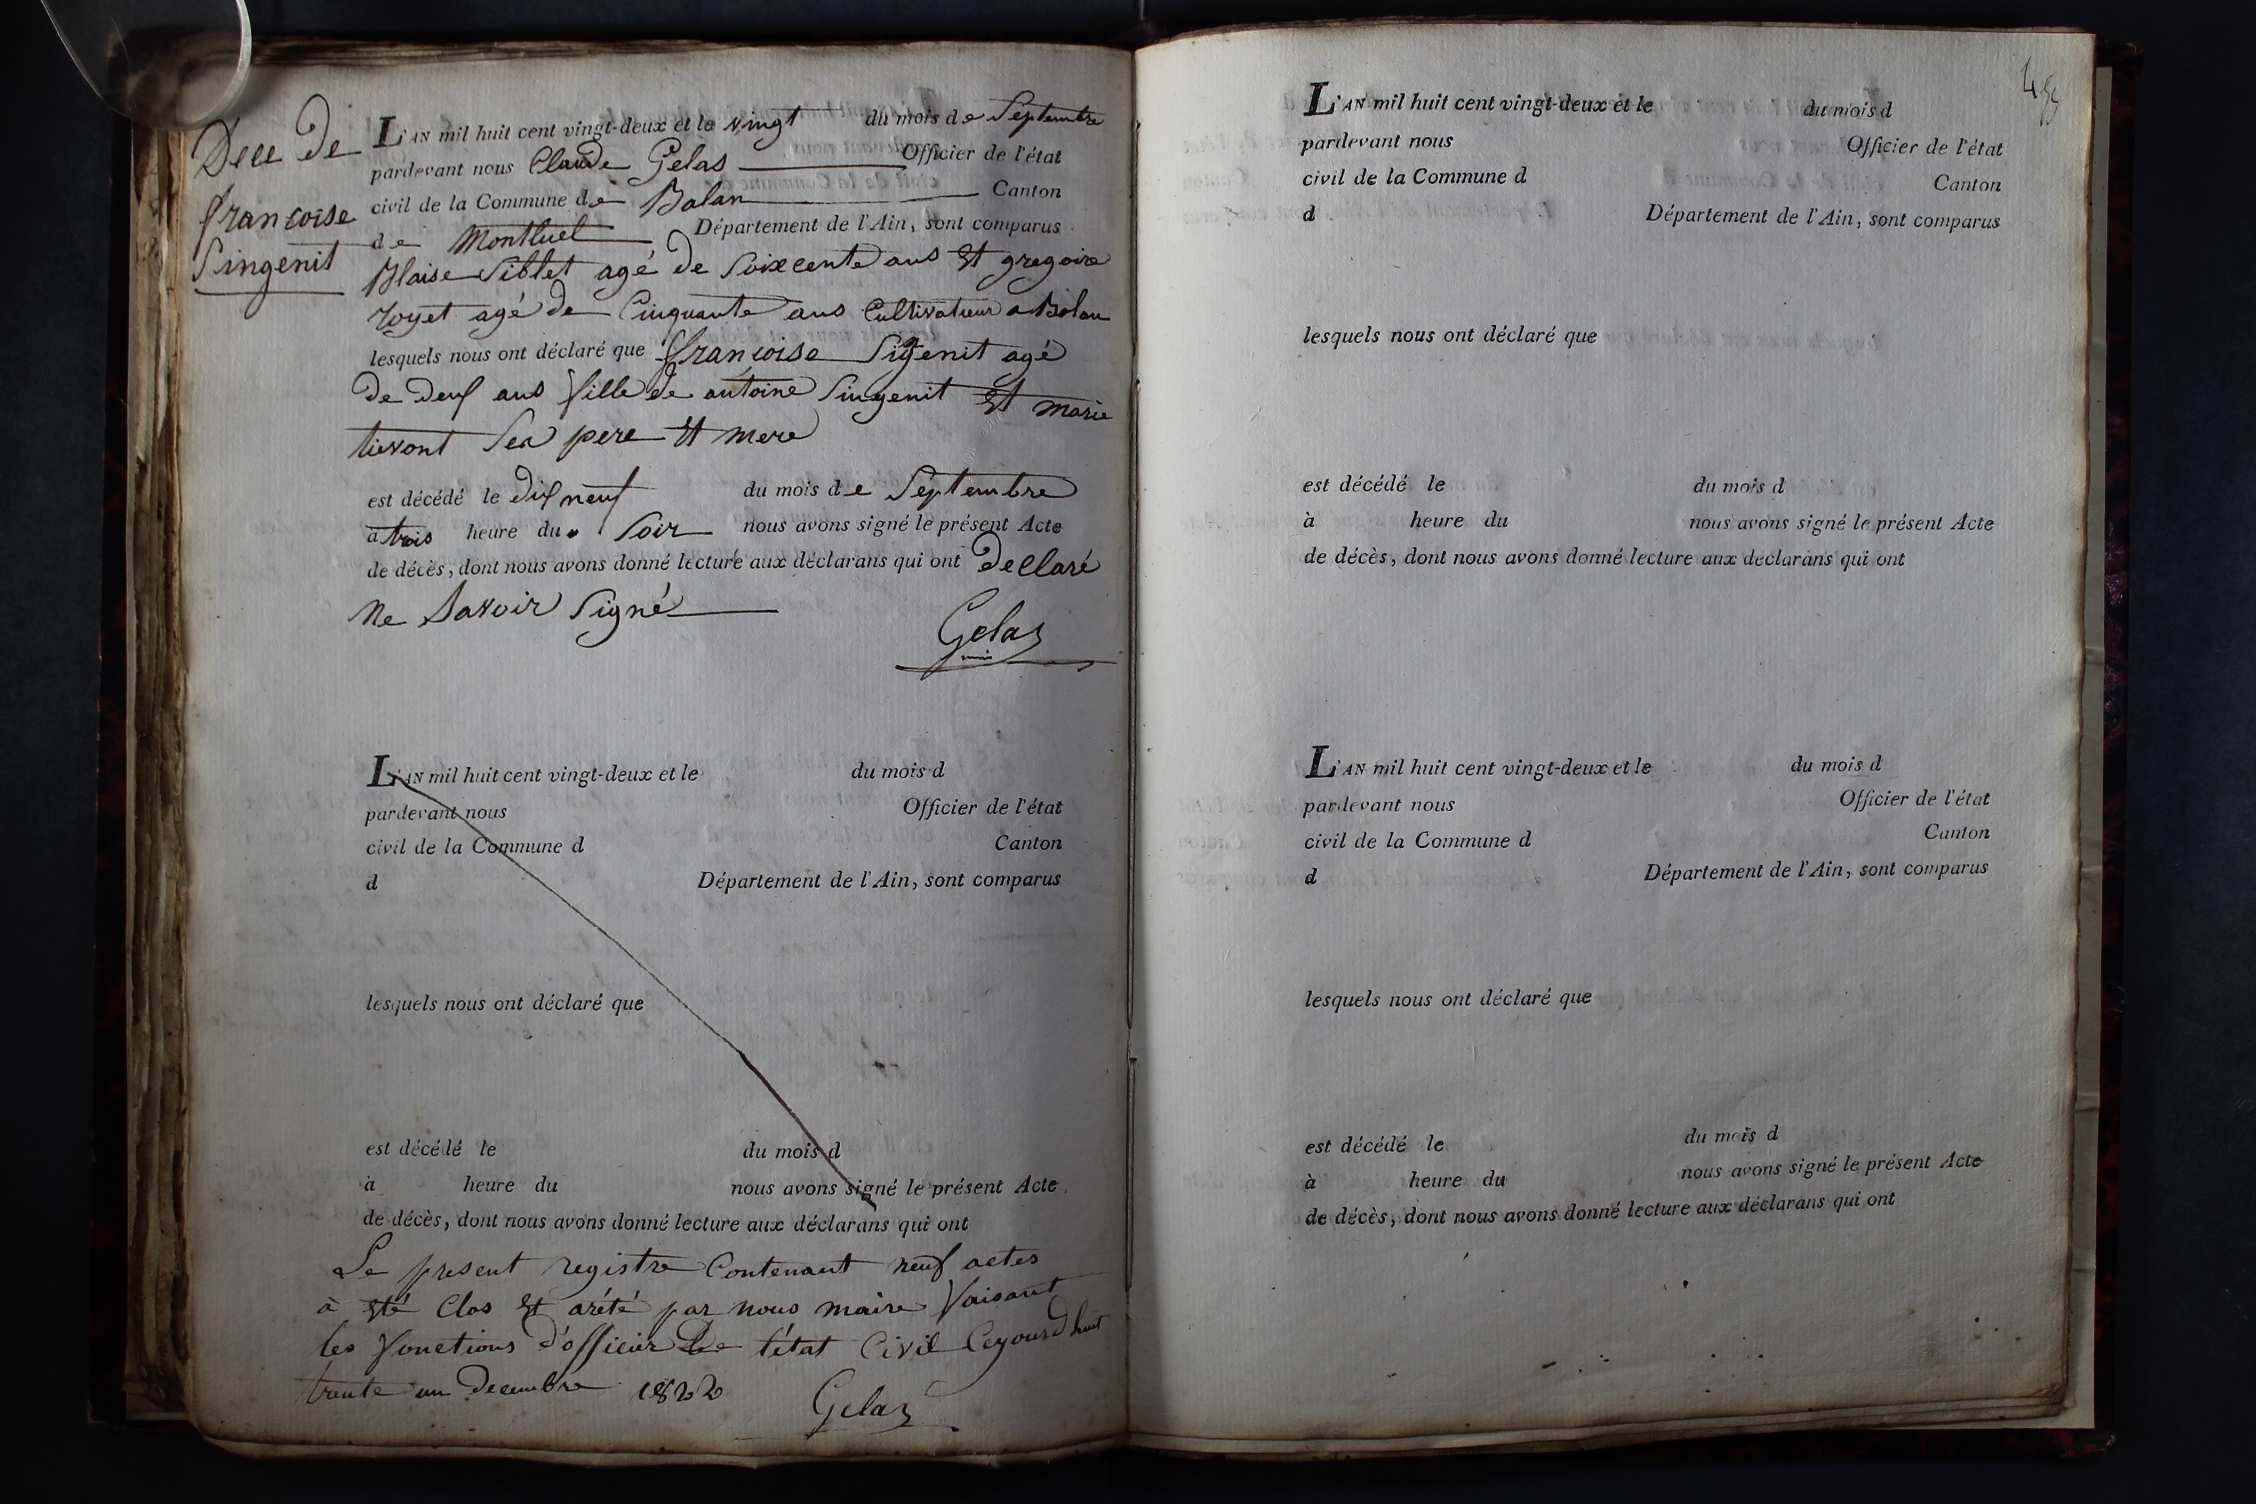 Déce de
francoise
Singenit
L'AN mil huit cent vingt-deux et le vingt du mois de Septembre
pardevant nous Claude Gelas Officier de l'état
civil de la Commune de Balan Canton
de Montluel Département de l'Ain, sont comparus
Blaise Siblet agé de Soixcente ans Et gregoire
royet agé de Cinquante ans Cultivateur a Balan
lesquels nous ont déclaré que françoise Sigenit agé
de deux ans fille de antoine Singenit Et marie
tievont Ses pere Et mere
est décédé le dix neuf du mois de Séptembre
à trois heure du Soir nous avons signé le présent Acte
de décès, dont nous avons donné lecture aux déclarans qui ont declaré
Ne Savoir Signé
Gelas
maire
L'AN mil huit cent vingt-deux et le du mois d
pardevant nous Officier de l'état
civil de la Commune d Canton
d Département de l'Ain, sont comparus
lesquels nous ont déclaré que
est décédé le du mois d
à heure du nous avons signé le présent Acte
de décès, dont nous avons donné lecture aux déclarans qui ont
Le present registre Contenant neuf actes
à été Clos Et arété par nous maire faisant
les fonctions d'officier De l'état Civil Cejourd'huit
trente un Decembre 1822
Gelas
L'AN mil huit cent vingt-deux et le du mois d
pardevant nous Officier de l'état
civil de la Commune d Canton
d Département de l'Ain, sont comparus
lesquels nous ont déclaré que
est décédé le du mois d
à heure du nous avons signé le présent Acte
de décès, dont nous avons donné lecture aux déclarans qui ont
L'AN mil huit cent vingt-deux et le du mois d
pardevant nous Officier de l'état
civil de la Commune d Canton
d Département de l'Ain, sont comparus
lesquels nous ont déclaré que
est décédé le du mois d
à heure du nous avons signé le présent Acte
de décès, dont nous avons donné lecture aux déclarans qui ont